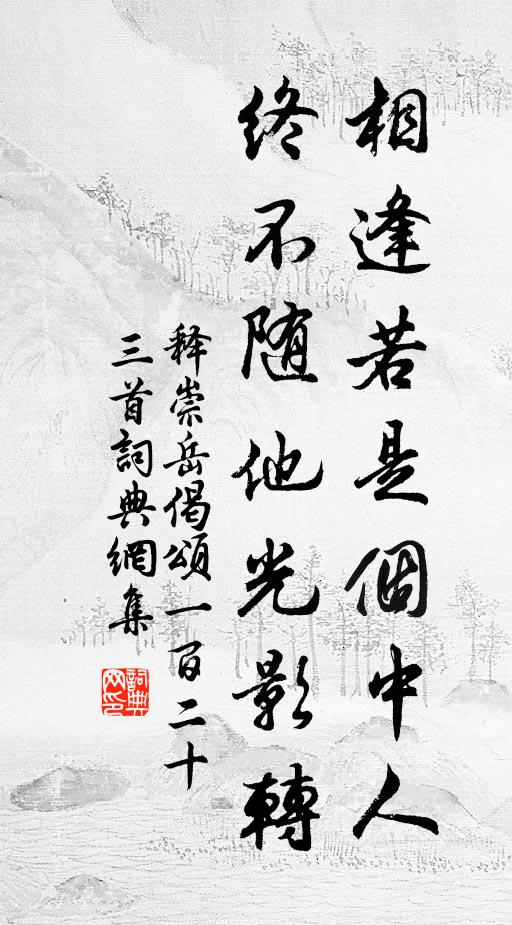 相逢若是個中人
終不随他光影轉
释崇岳偈頌一百二十
三首詞典網集
詞典网印